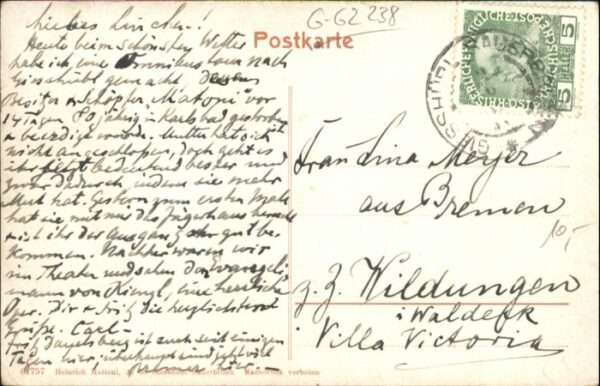 Liebes Linchen!
Heute beim schönsten Wetter
habe ich eine Omnibus tour nach
Giesshübl gemacht, dessen
Besitzer & Schöpfer „Mattoni“ vor
14 Tagen 80 jährig in Karlsbad gestorben
& beerdigt wurde. Mutter hat sich
nicht angeschlossen, doch geht es
ihr jetzt bedeutend besser und
zwar dadurch, indem sie mehr
Mut hat. Gestern zum ersten Male
hat sie mit mir das Jägerhaus besucht
& ist ihr der Ausgang sehr gut be-
kommen. Nachher waren wir
im Theater und sahen den Evangeli-
mann von Kienzl, eine herrliche
Oper. Dir & Fritz die herzlichsten
Grüße. Carl.
Fritz ist auch seit einigen
Tagen hier, überhaupt sind
G-G2 238
Postkarte
5
5
Frau Lina Meyer
aus Bremen
10,-
z. Z. Wildungen
i Waldeck
Villa Victoria
Heinrich Mattoni, Nachdruck verboten